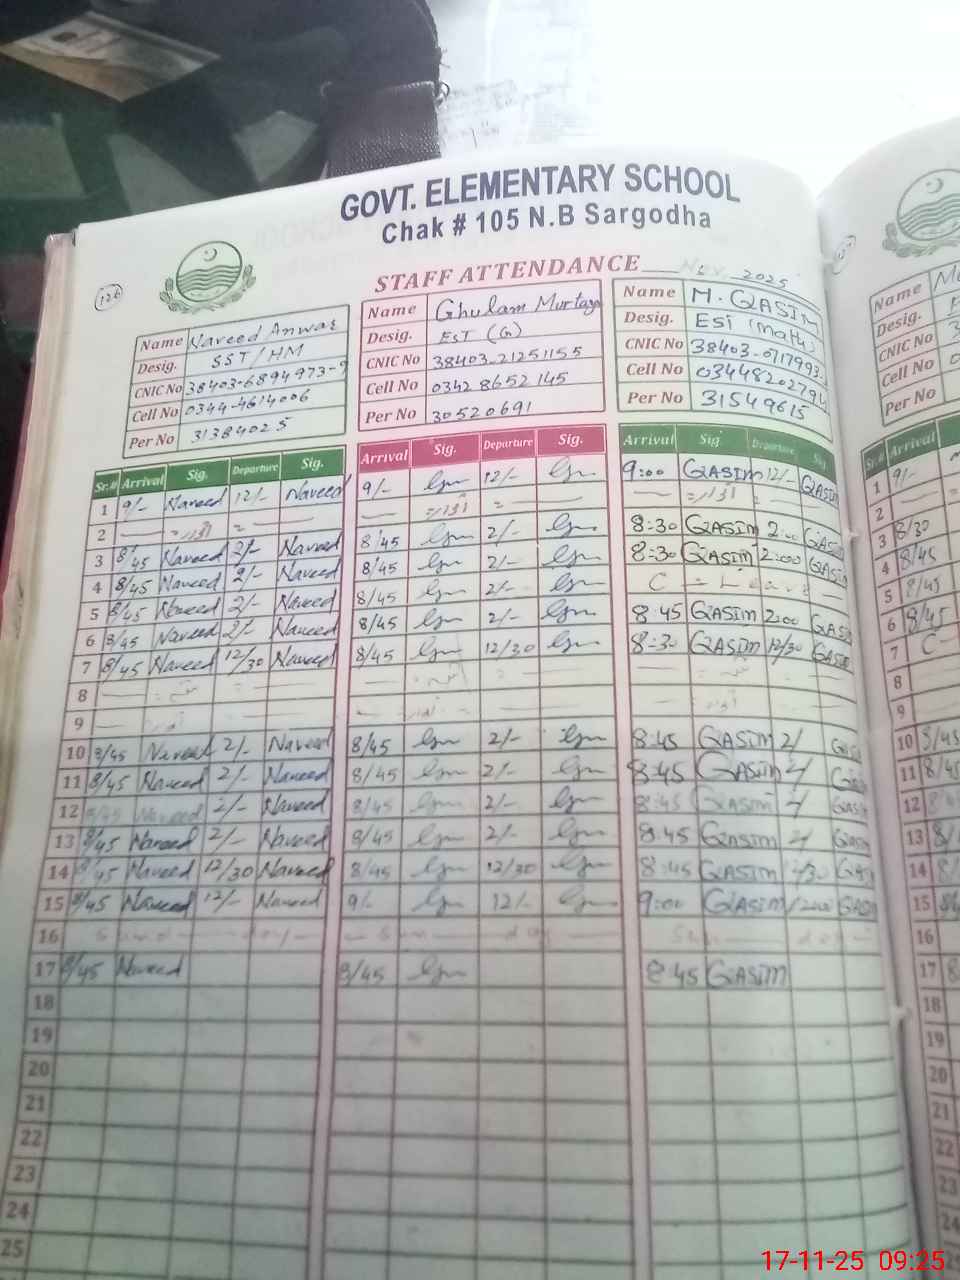 GOVT. ELEMENTARY SCHOOL
Chak # 105 N.B Sargodha
STAFF ATTENDANCE Nov. 2025
126
Name Naveed Anwar
Desig. SST/HM
CNIC No 38403-6894973-9
Cell No 0344-4614006
Per No 31384025
Name Ghulam Murtaza
Desig. EST (G)
CNIC No 38403-21251155
Cell No 0342 8652145
Per No 30520691
Name M. QASIM
Desig. ESt (math)
CNIC No 38403-0717993
Cell No 0344820279
Per No 31549615
Name
Desig.
CNIC No
Cell No
Per No
Sr.# Arrival Sig. Departure Sig. Arrival Sig. Departure Sig. Arrival Sig Departure Sig Arrival
1 9/- Naveed 12/- Naveed 9/- 12/- 9:00 QASIM 12/- QASIM 1 9/-
2 اتوار اتوار اتوار 2
3 8/45 Naveed 2/- Naveed 8/45 2/- 8:30 QASIM 2:00 QASIM 3 8/30
4 8/45 Naveed 2/- Naveed 8/45 2/- 8:30 QASIM 2:00 QASIM 4 8/45
5 8/45 Naveed 2/- Naveed 8/45 2/- C = Leave 5 8/45
6 8/45 Naveed 2/- Naveed 8/45 2/- 8 45 QASIM 2:00 QASIM 6 8/45
7 8/45 Naveed 12/30 Naveed 8/45 12/30 8:30 QASIM 12/30 QASIM 7 C
8 8
9 9
10 8/45 Naveed 2/- Naveed 8/45 2/- 8:45 QASIM 2/ 10 8/45
11 8/45 Naveed 2/- Naveed 8/45 2/- 8:45 QASIM 11 8/45
12 8/45 Naveed 2/- Naveed 8/45 2/- 8:45 QASIM QASIM 12
13 8/45 Naveed 2/- Naveed 8/45 2/- 8:45 QASIM QASIM 13
14 8/45 Naveed 12/30 Naveed 8/45 12/30 8:45 QASIM 12/30 QASIM 14
15 8/45 Naveed 12/- Naveed 9/- 12/- 9:00 QASIM 12:00 QASIM 15
16 Sunday Sunday Sunday 16
17 8/45 Naveed 8/45 8:45 QASIM 17
18 18
19 19
20 20
21 21
22 22
23 23
24 24
25
17-11-25 09:25